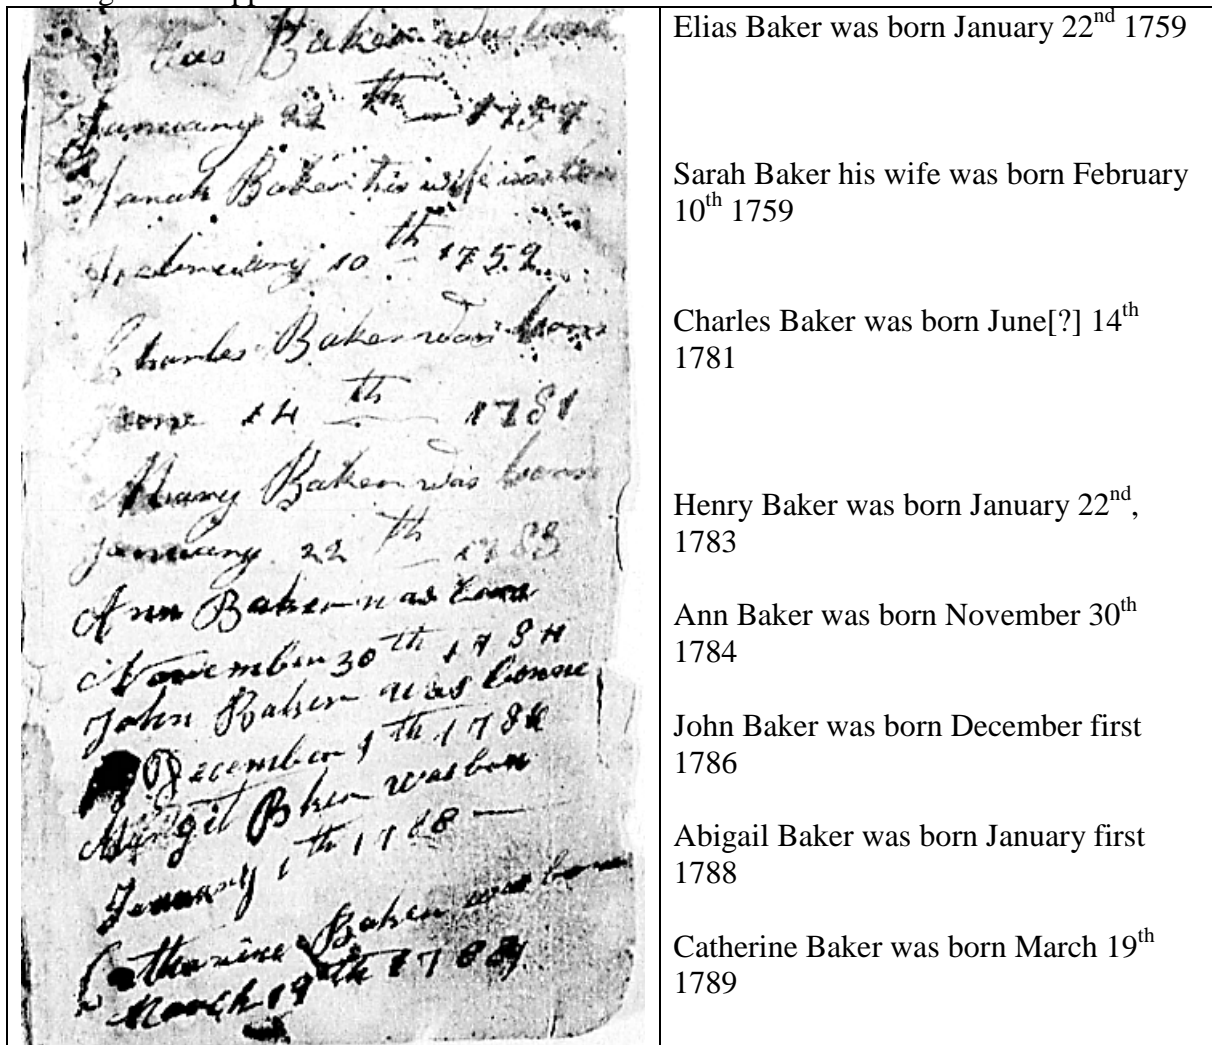 as Baker was born
January 22 th 1759
Sarah Baker his wife was born
February 10 th 1759
Charles Baker was born
June 14 th 1781
Baker was born
January 22 th 1783
Ann Baker was born
November 30 th 1784
John Baker was borne
December 1 th 178
Bker was born
January 1 th 1788
Catharine Baker was born
March 19 th 178
Elias Baker was born January 22nd 1759
Sarah Baker his wife was born February
10th 1759
Charles Baker was born June[?] 14th
1781
Henry Baker was born January 22nd,
1783
Ann Baker was born November 30th
1784
John Baker was born December first
1786
Abigail Baker was born January first
1788
Catherine Baker was born March 19th
1789